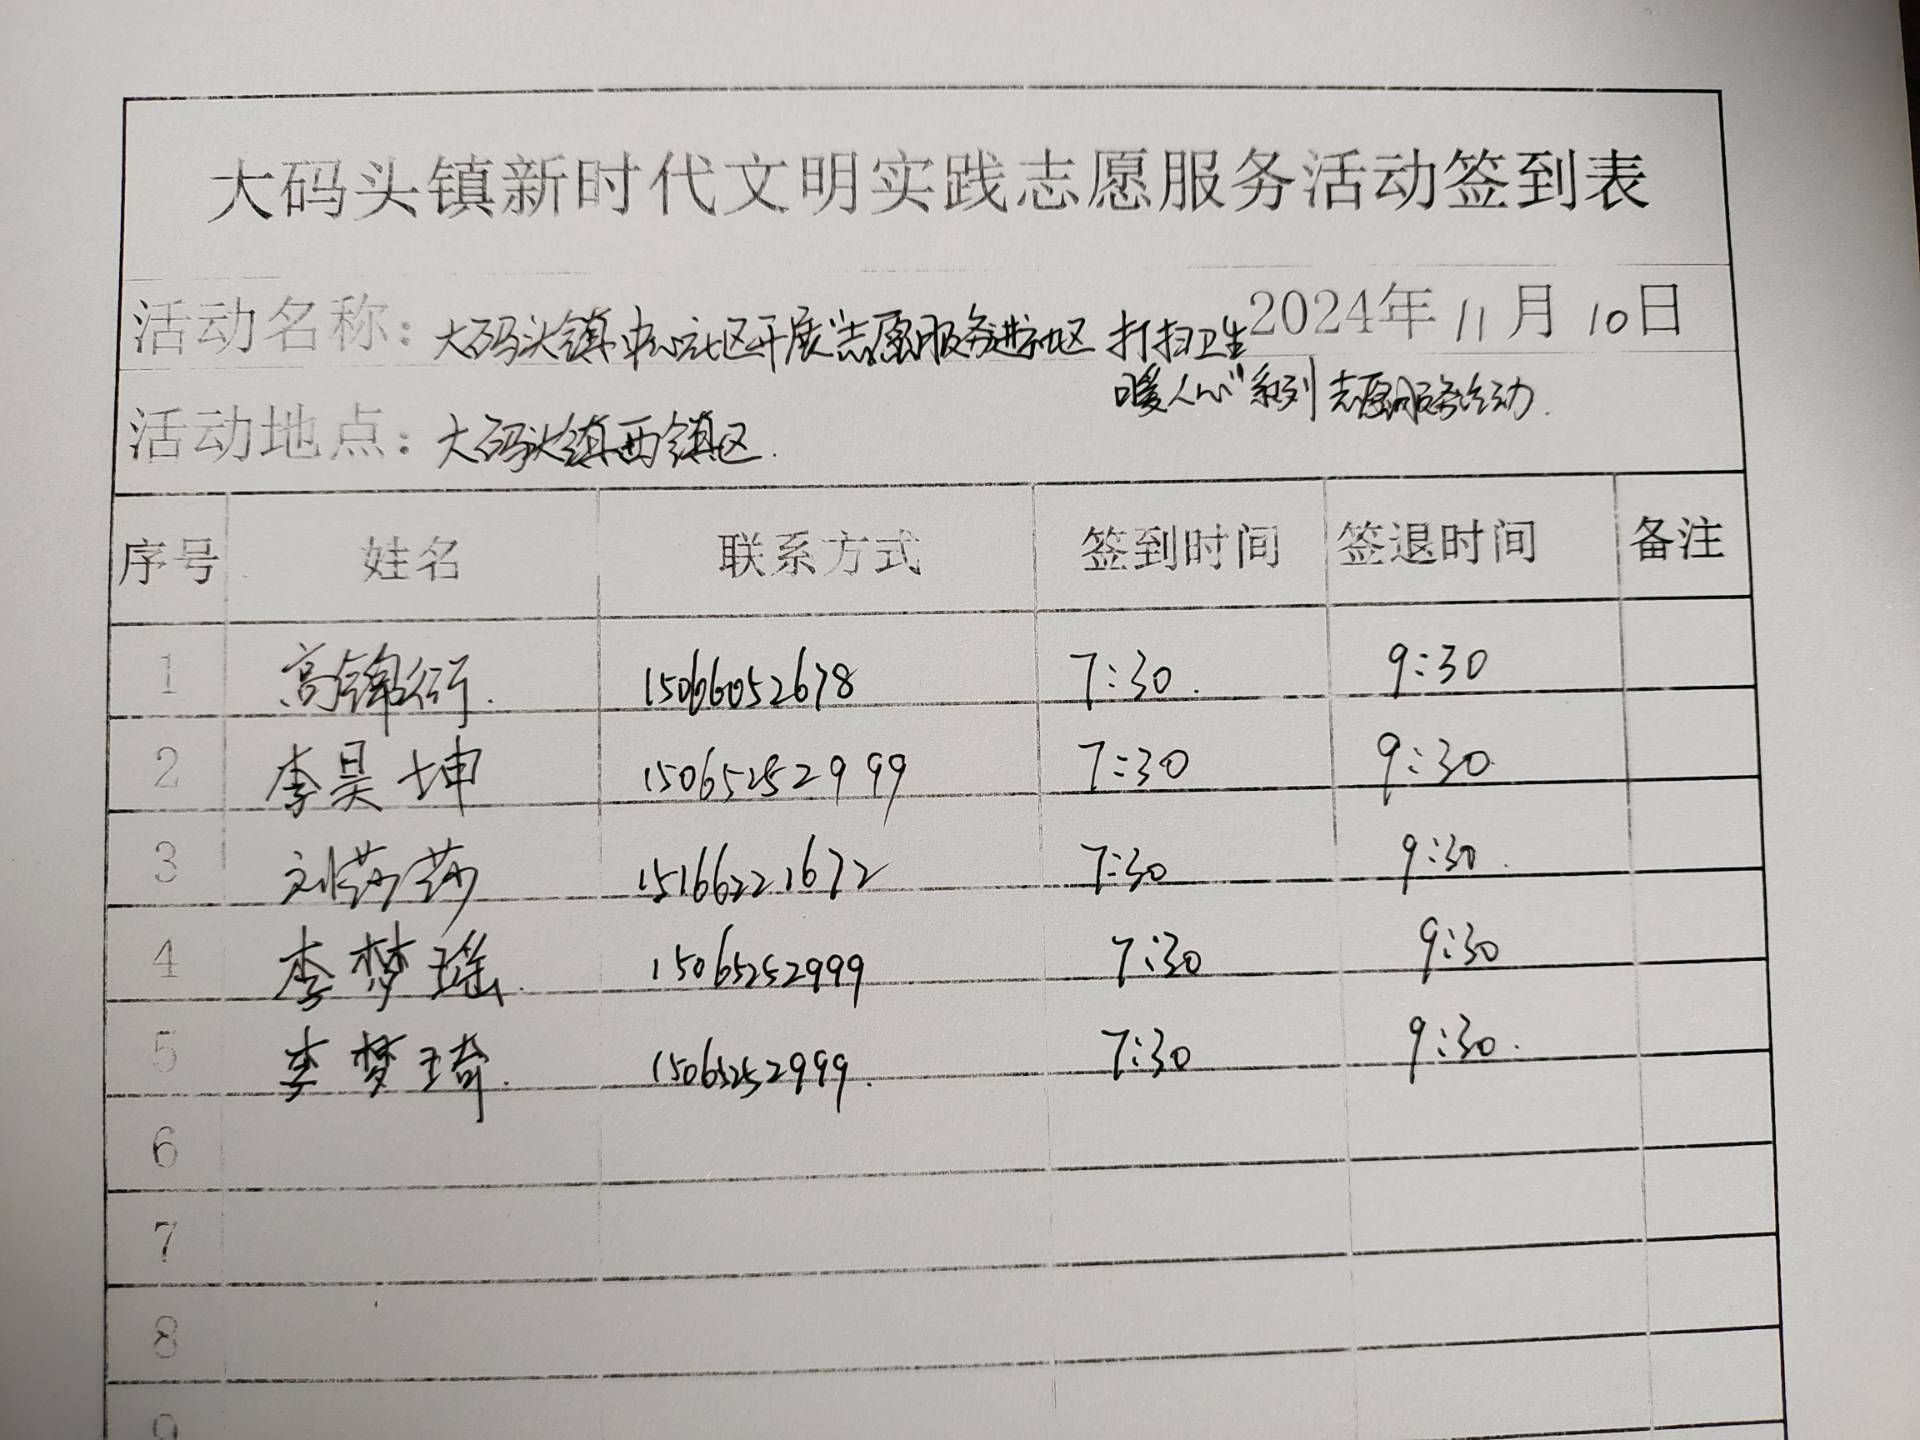 大码头镇新时代文明实践志愿服务活动签到表
活动名称：大码头镇中心社区开展“志愿服务进社区 打扫卫生 2024年11月10日
暖人心”系列志愿服务活动.
活动地点：大码头镇西镇区.
序号 姓名 联系方式 签到时间 签退时间 备注
1 高锦衍. 15066052678 7:30. 9:30
2 李昊坤 15065252999 7:30 9:30
3 刘莎莎 15166221672 7:30 9:30.
4 李梦瑶. 15065252999 7:30 9:30
5 李梦琦. 15065252999. 7:30 9:30.
6
7
8
9